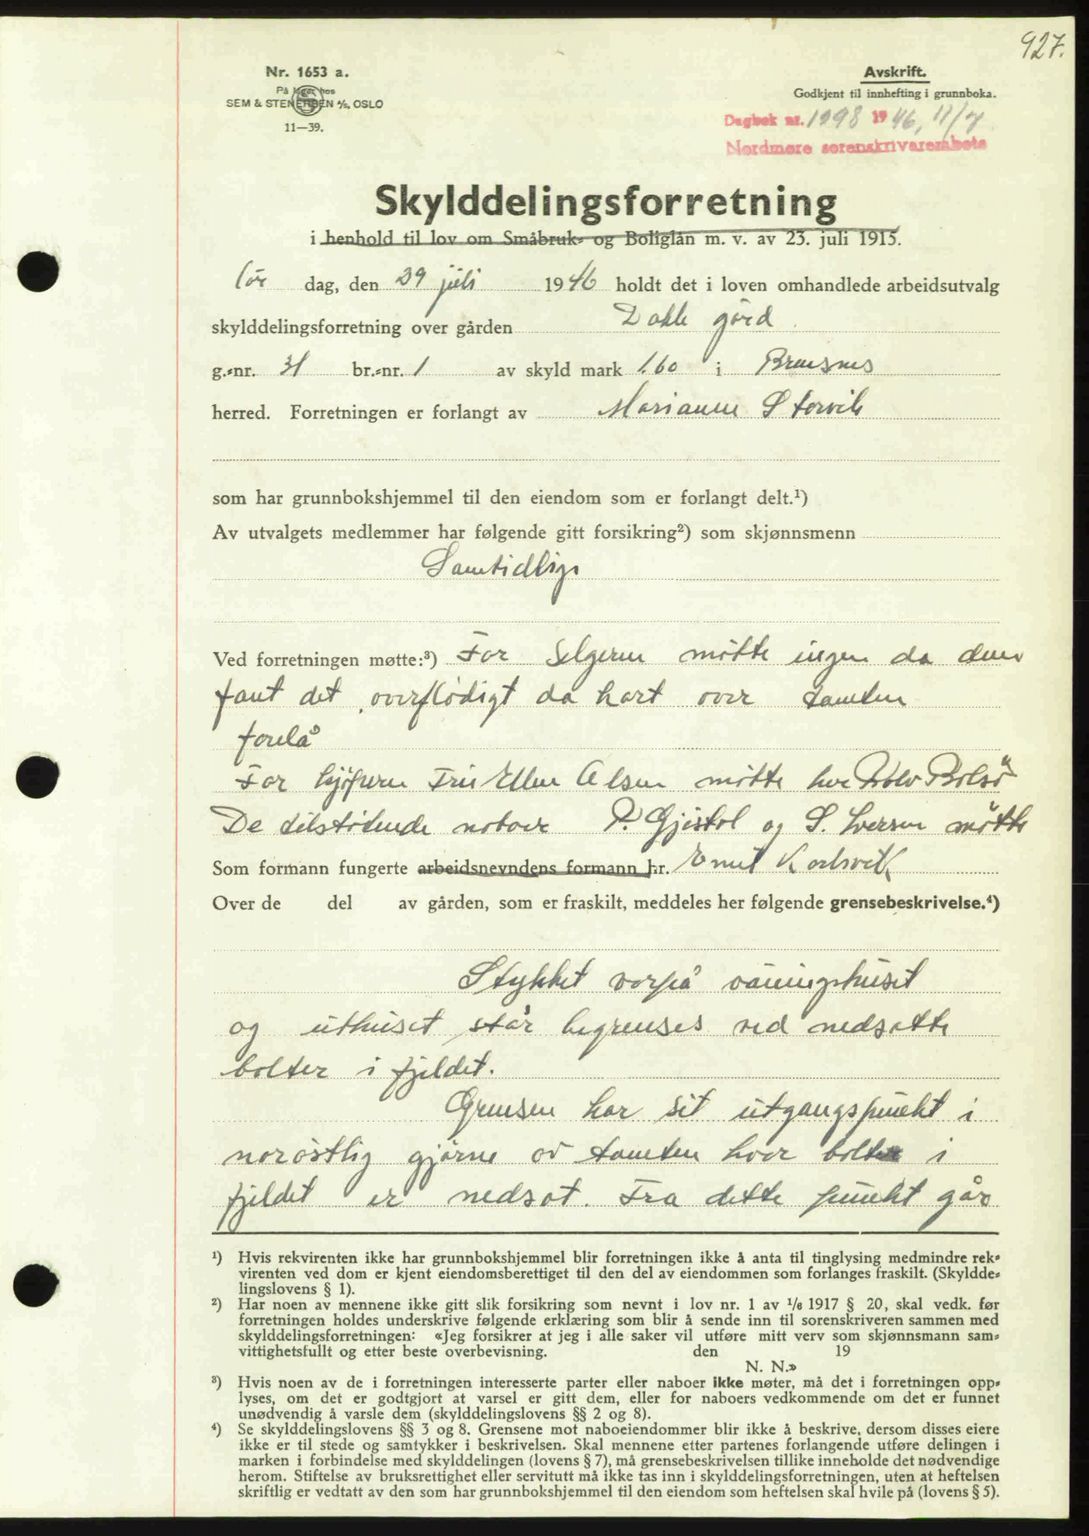 927.
Nr. 1653 a.
På lager hos
SEM & STENERSEN A/S, OSLO
11—39.
Avskrift.
Godkjent til innhefting i grunnboka.
Dagbok nr. 1998 1946, 11/7
Nordmøre sorenskriverembete
Skylddelingsforretning
i henhold til lov om Småbruk- og Boliglån m. v. av 23. juli 1915.
lør dag, den 29 juli 1946 holdt det i loven omhandlede arbeidsutvalg
skylddelingsforretning over gården Dakle gård
g.-nr. 31 br.-nr. 1 av skyld mark 1.60 i Bremsnes
herred. Forretningen er forlangt av Marianne Storvik
som har grunnbokshjemmel til den eiendom som er forlangt delt.¹)
Av utvalgets medlemmer har følgende gitt forsikring²) som skjønnsmenn
Samtidlige
Ved forretningen møtte:³) For Selgeren møtte ingen da denn
fant det overflödigt da kart over tomten
forelå
For kjøperen Fru Ellen Olsen møtte hr Bolsö
De tilstötende naboer P. Gjistol og S. Iversen mötte
Som formann fungerte arbeidsnevndens formann hr. Knut Karlsvik
Over de del av gården, som er fraskilt, meddeles her følgende grensebeskrivelse.⁴)
Stykket vorpå våningshuset
og uthuset står begrenses ved nedsatte
bolter i fjeldet.
Grensen har sit utgangspunkt i
noröstlig hjörne av tomten hvor bolten i
fjeldet er nedsat. Fra dette punkt går
¹) Hvis rekvirenten ikke har grunnbokshjemmel blir forretningen ikke å anta til tinglysing medmindre rek-
virenten ved dom er kjent eiendomsberettiget til den del av eiendommen som forlanges fraskilt. (Skyldde-
lingslovens § 1).
²) Har noen av mennene ikke gitt slik forsikring som nevnt i lov nr. 1 av 1/6 1917 § 20, skal vedk. før
forretningen holdes underskrive følgende erklæring som blir å sende inn til sorenskriveren sammen med
skylddelingsforretningen: «Jeg forsikrer at jeg i alle saker vil utføre mitt verv som skjønnsmann sam-
vittighetsfullt og etter beste overbevisning. den 19
N. N.»
³) Hvis noen av de i forretningen interesserte parter eller naboer ikke møter, må det i forretningen opp-
lyses, om det er godtgjort at varsel er gitt dem, eller for naboers vedkommende om det er funnet
unødvendig å varsle dem (skylddelingslovens §§ 2 og 8).
⁴) Se skylddelingslovens §§ 3 og 8. Grensene mot naboeiendommer blir ikke å beskrive, dersom disses eiere
ikke er til stede og samtykker i beskrivelsen. Skal mennene etter partenes forlangende utføre delingen i
marken i forbindelse med skylddelingen (lovens § 7), må grensebeskrivelsen tillike inneholde det nødvendige
herom. Stiftelse av bruksrettighet eller servitutt må ikke tas inn i skylddelingsforretningen, uten at heftelsen
skriftlig er vedtatt av den som har grunnbokshjemmel til den eiendom som heftelsen skal hvile på (lovens § 5).